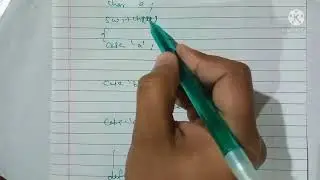 char a;
switch(a)
{
case 'a',
case '
case
def